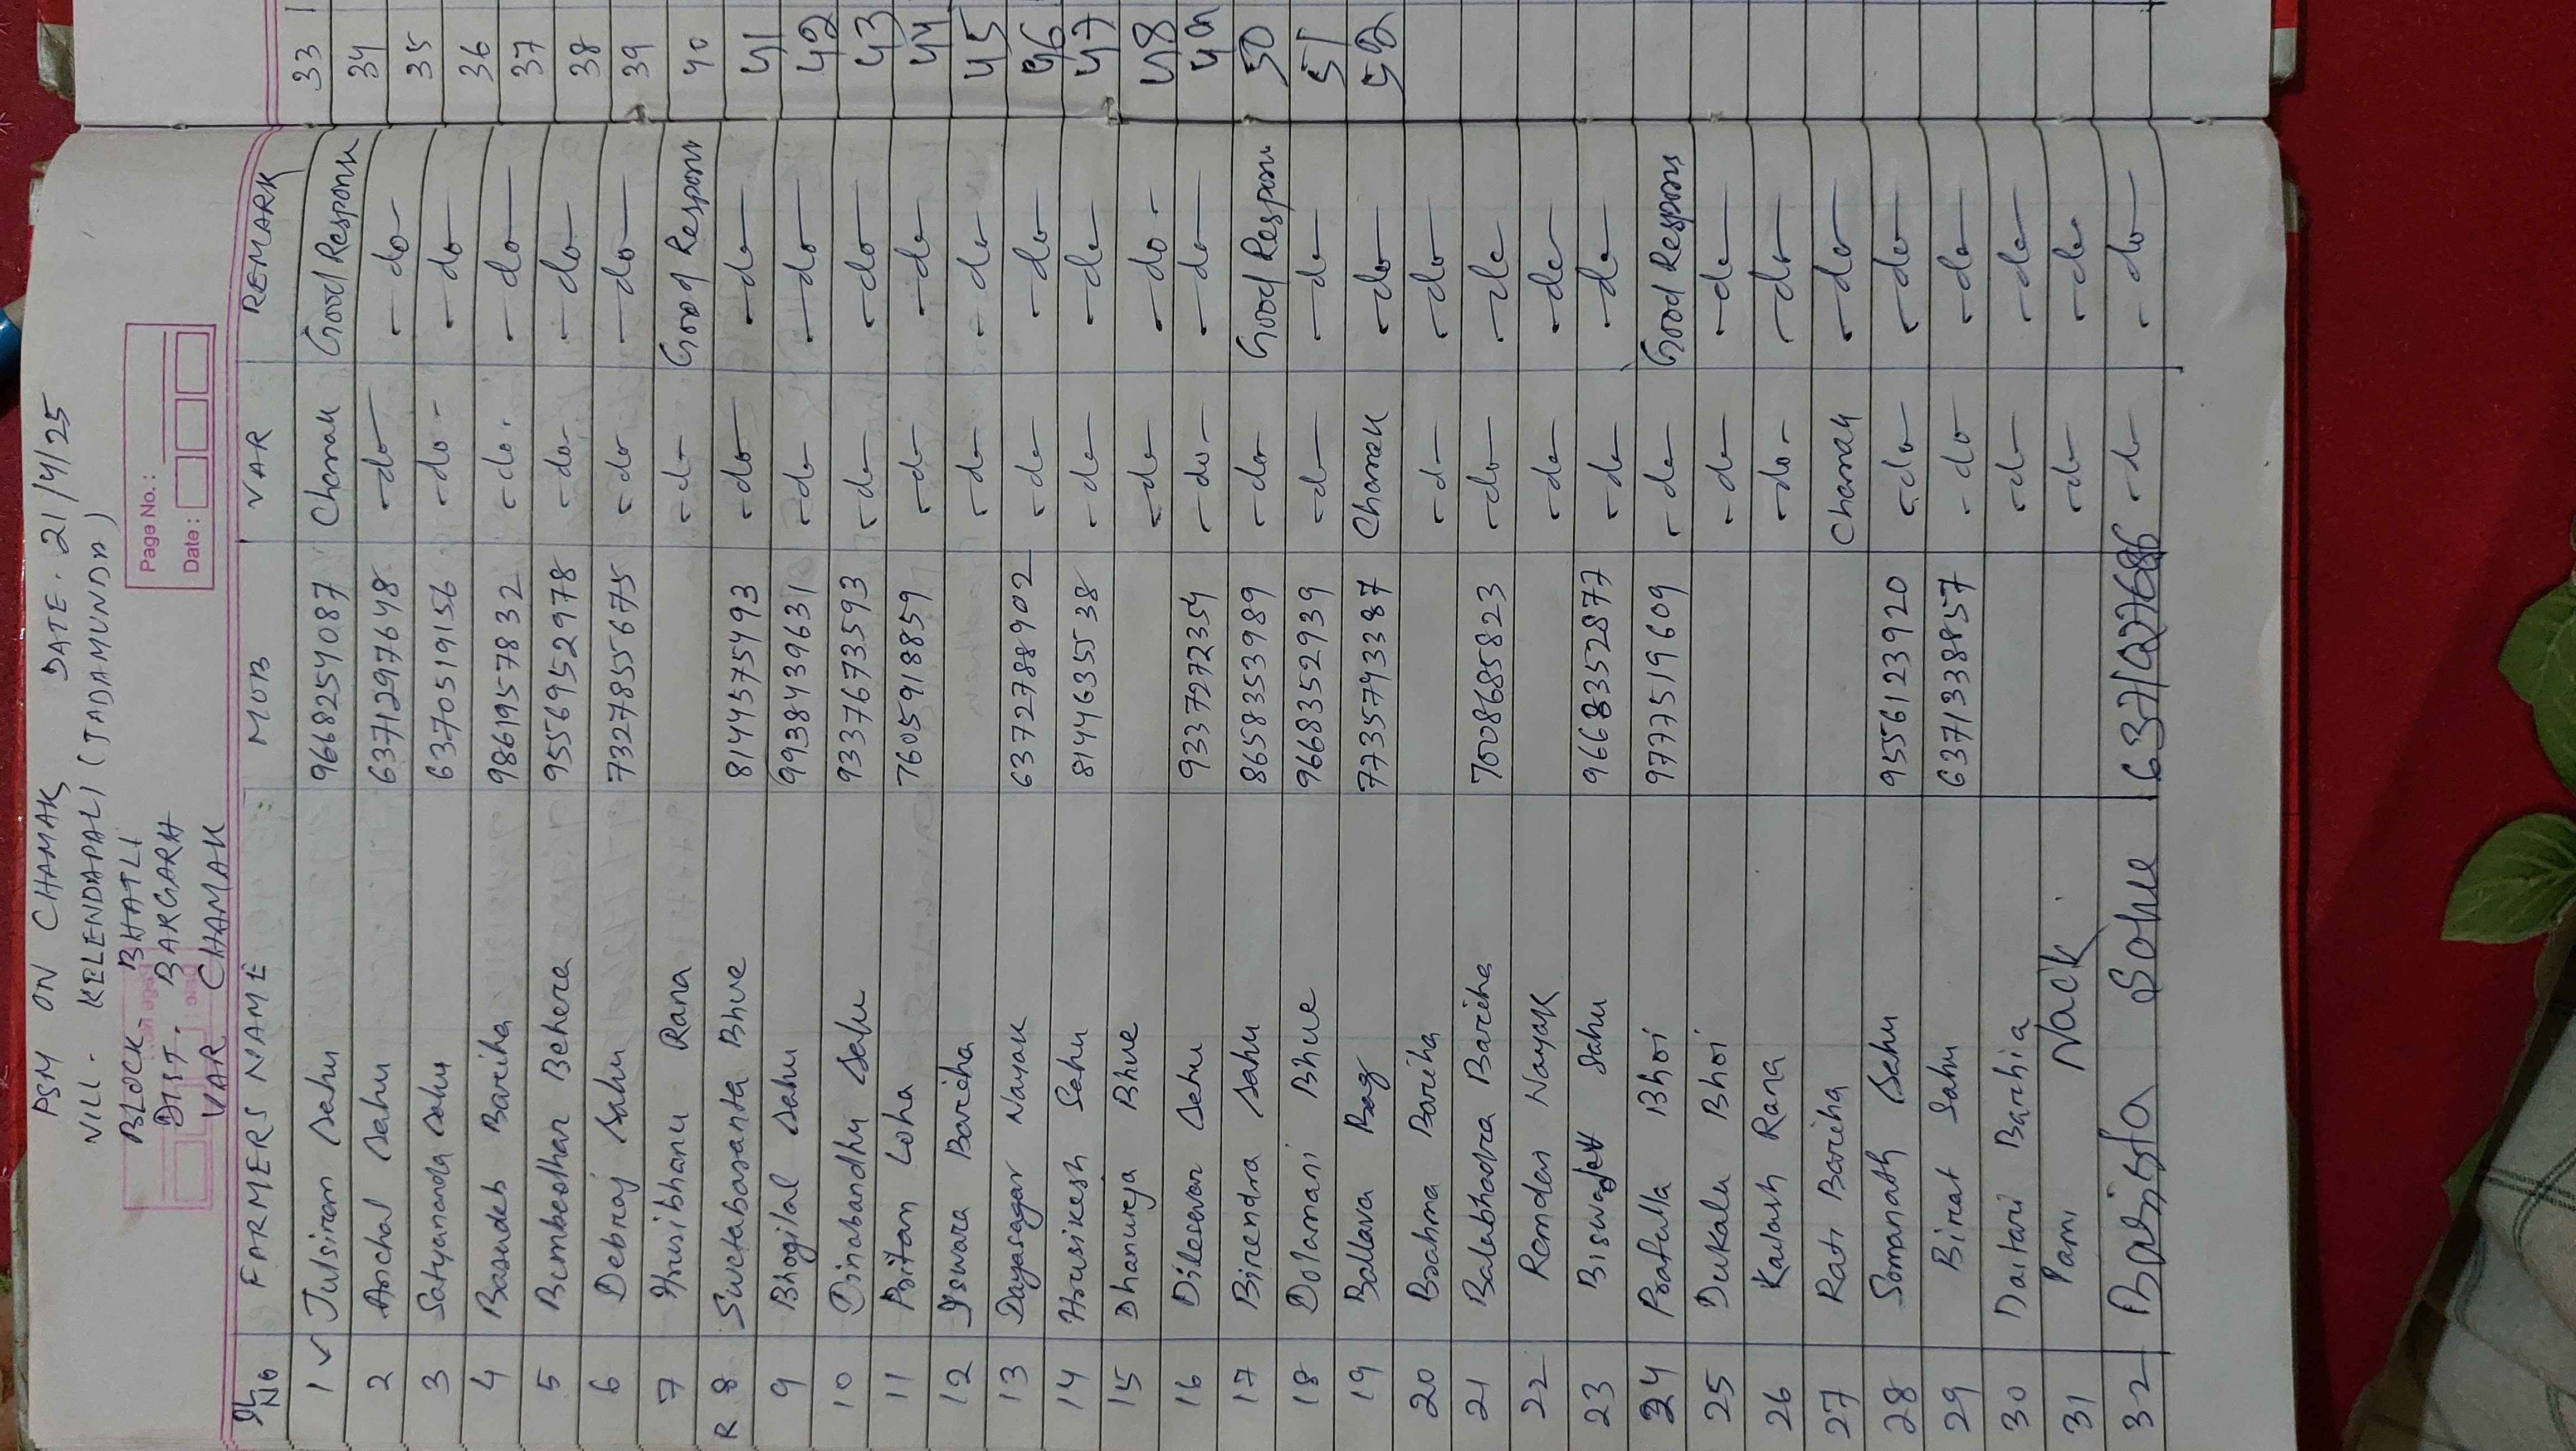 PSM ON CHAMAK DATE. 21/4/25
VILL. KELENDAPALI (JADAMUNDA)
BLOCK- BHATLI
DIST. BARGARH
VAR CHAMAK
Page No.:
Date:
SL NO FARMERS NAME MOB VAR REMARK
1 Tulsiram Sahu 9668254087 Chamak Good Response
2 Anchal Sahu 6371297648 -do- -do-
3 Satyananda Sahu 6370519156 -do- -do-
4 Basudeb Bariha 9861957832 -do- -do-
5 Bimbeodhar Behera 9556952978 -do- -do-
6 Debraj Sahu 7327855675 -do- -do-
7 Hrusibhanu Rana -do- Good Respons
R 8 Swetabasanta Bhue 8144575493 -do- -do-
9 Bhogilal Sahu 9938439631 -do- -do-
10 Dinabandhu Sahu 9337673593 -do- -do-
11 Pritan Loha 7605918859 -do- -do-
12 Iswara Bariha -do- -do-
13 Dayasagar Nayak 6372788902 -do- -do-
14 Hrusikesh Sahu 8144635538 -do- -do-
15 Dhanurja Bhue -do- -do-
16 Dileswar Sahu 9337272354 -do- -do-
17 Birendra Sahu 8658353989 -do- Good Respon
18 Dolamani Bhue 9668352939 -do- -do-
19 Ballava Bag 7735743387 Chamak -do-
20 Brahma Bariha -do- -do-
21 Balabhadra Bariha 7008685823 -do- -do-
22 Ramdev Nayak -do- -do-
23 Biswajet Sahu 9668352877 -do- -do-
24 Prafulla Bhoi 9777519609 -do- Good Respons
25 Dukalu Bhoi -do- -do-
26 Kailash Rana -do- -do-
27 Rati Bariha Chamak -do-
28 Somanath Sahu 9556123920 -do- -do-
29 Birat Sahu 6371338857 -do- -do-
30 Daitari Barhia -do- -do-
31 Pami Nack -do- -do-
32 Sahu -do- -do-
33
34
35
36
37
38
39
40
41
42
43
44
45
46
47
48
49
50
51
52